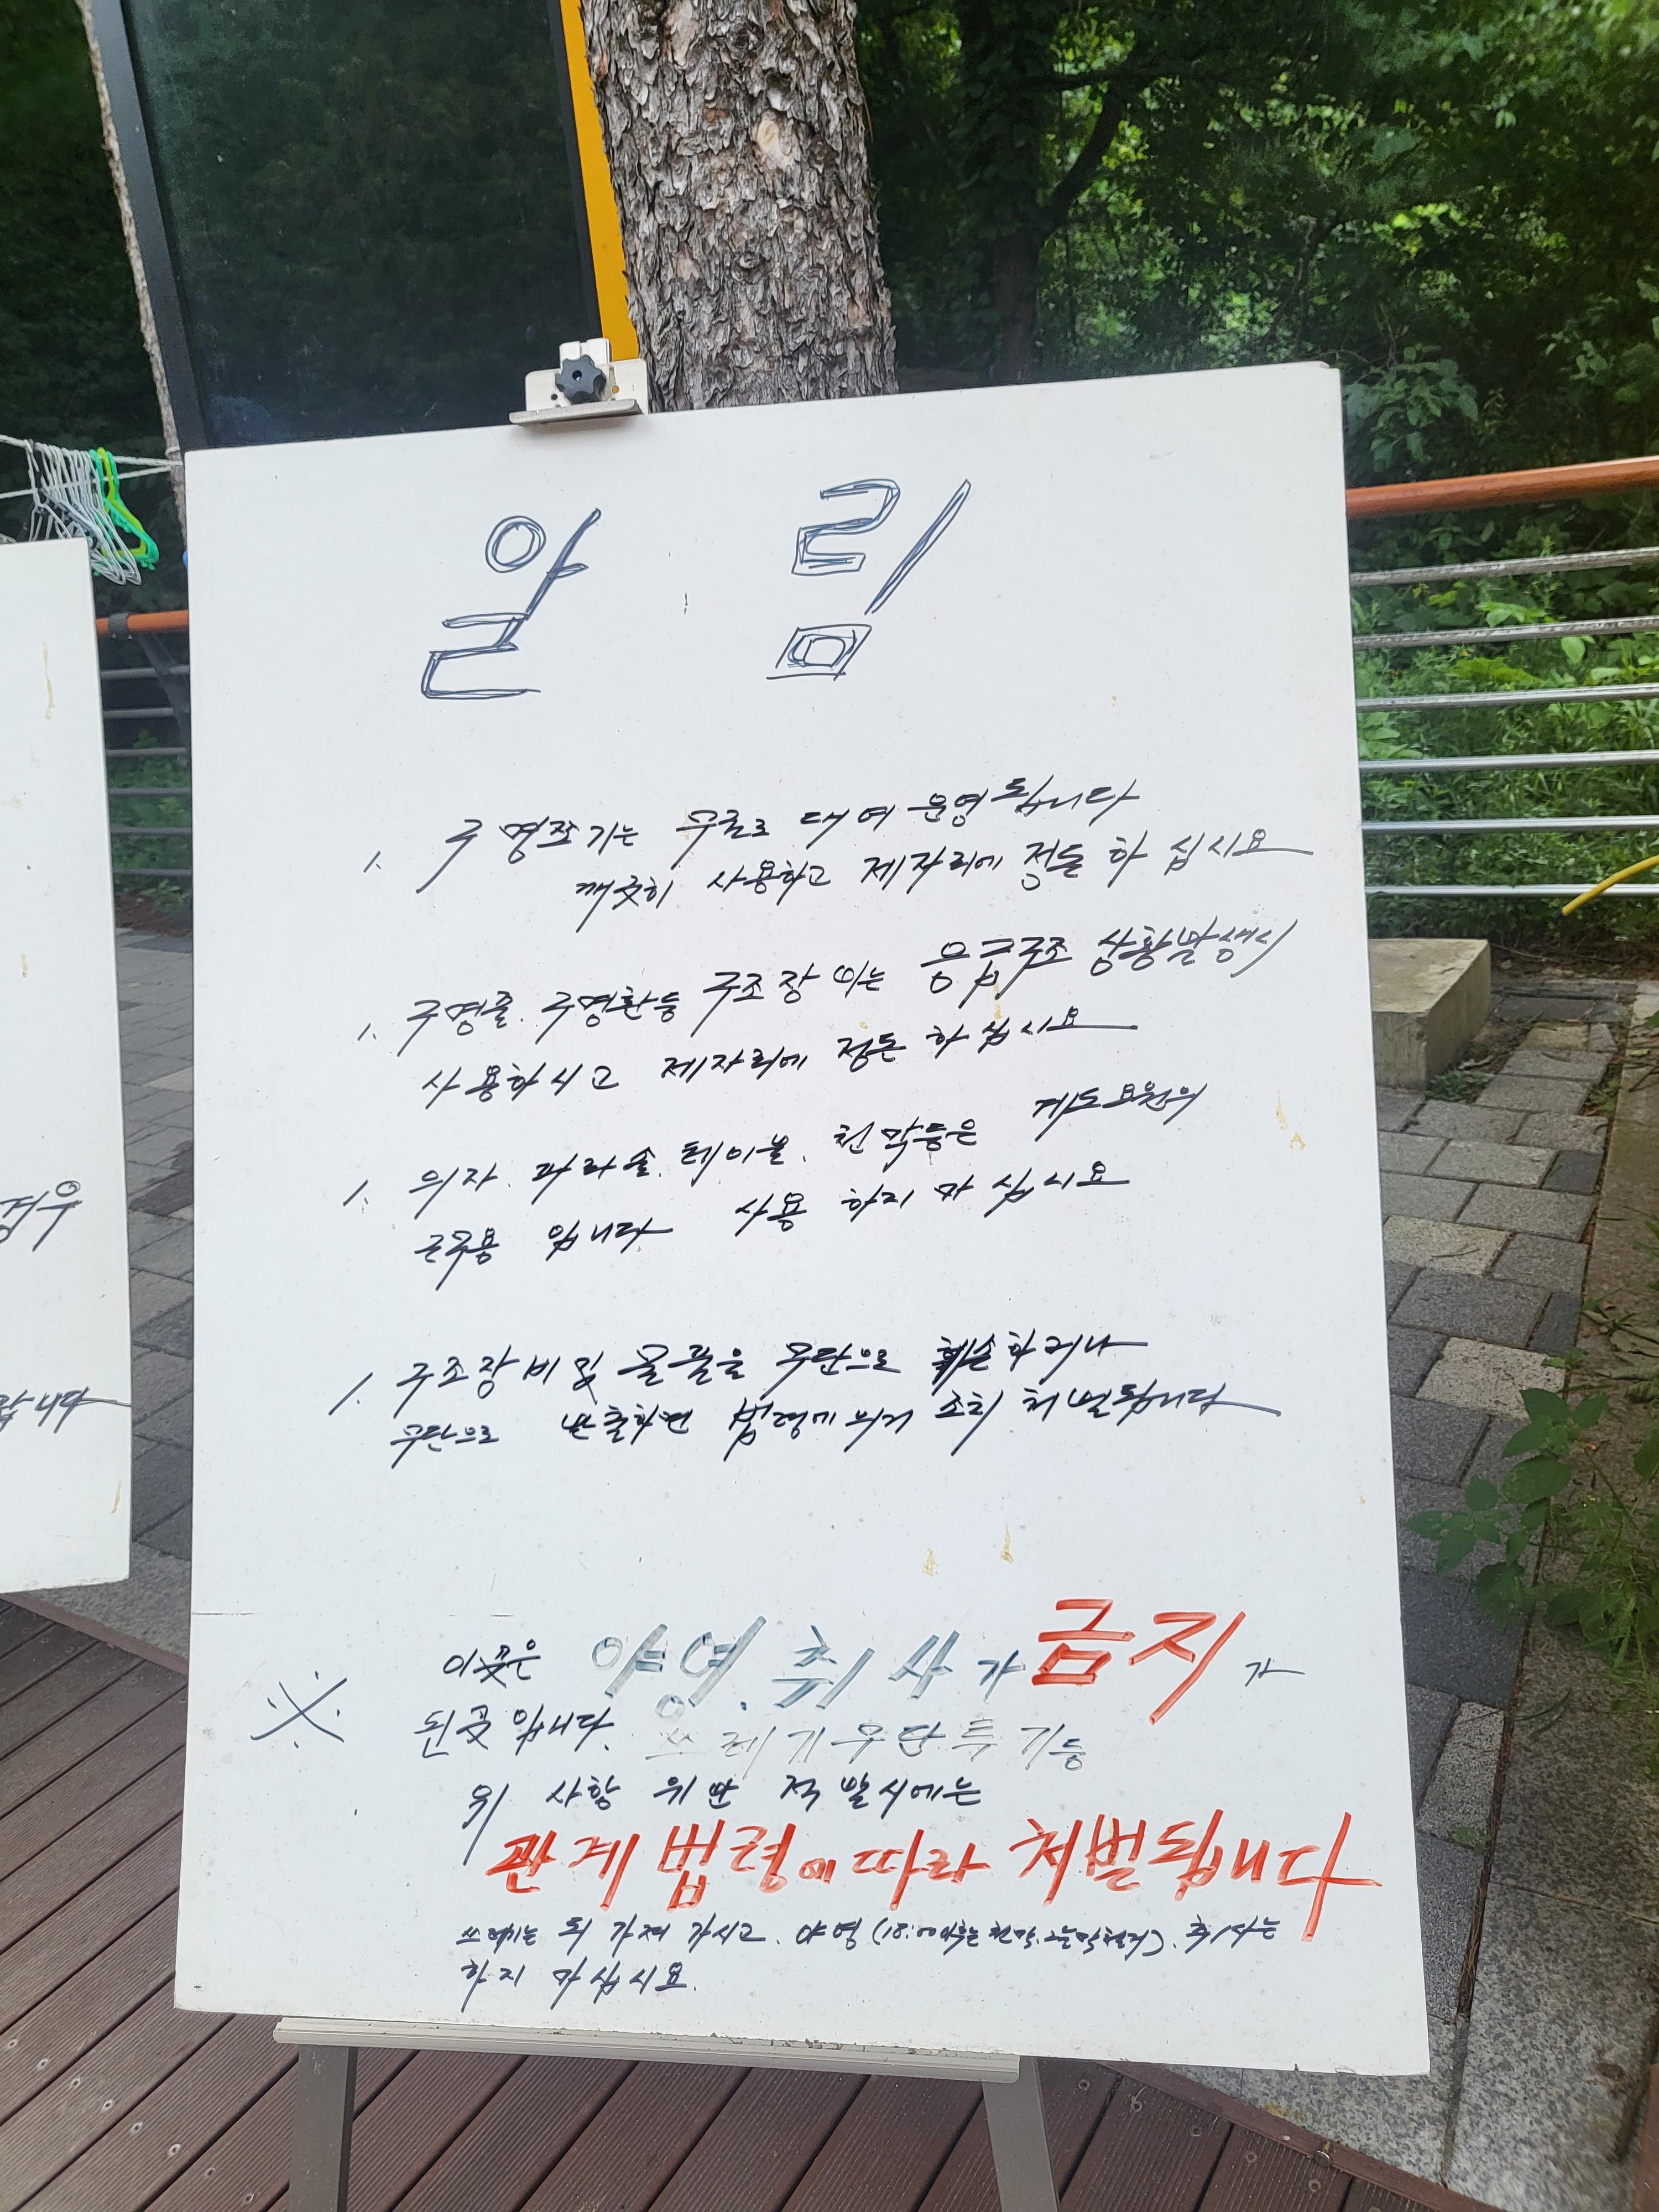 알림
1. 구명조끼는 무료로 대여 운영됩니다
깨끗히 사용하고 제자리에 정돈 하십시요
1. 구명줄. 구명환등 구조장비는 응급구조 상황발생시
사용하시고 제자리에 정돈 하십시요
1. 의자. 파라솔. 테이블. 천막등은 계도요원의
근무용 입니다 사용 하지 마십시요
1. 구조장비 및 물품을 무단으로 훼손하거나
무단으로 반출하면 법령에 의거 조치 처벌됩니다
※ 이곳은 야영. 취사가 금지가
된곳 입니다. 쓰레기무단투기등
위 사항 위반 적발시에는
관계법령에 따라 처벌됩니다
쓰레기는 되 가져 가시고. 야영(18:00이후는 천막.그늘막철거). 취사는
하지 마십시요.
경우
랍니다